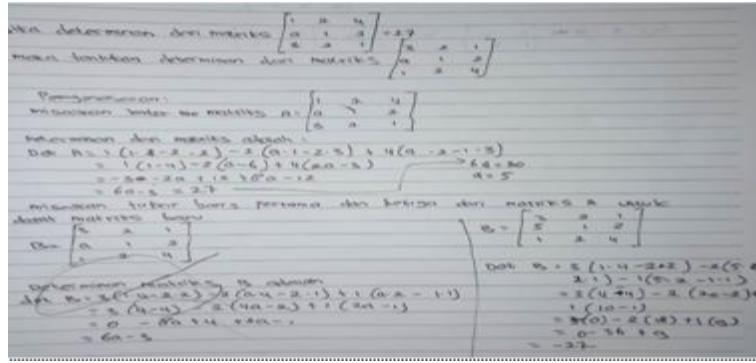 Jika determinan dari matriks [1 2 4 / a 1 2 / 3 2 1] = 27
maka tentukan determinan dari matriks [3 2 1 / a 1 2 / 1 2 4]
misalkan matriks A = [1 2 4 / a 1 2 / 3 2 1]
determinan dari matriks adalah :
Det A = 1 (1 - 2 - 2) - 2 (a - 1 - 2 - 3) + 4 (a - 2 - 1 - 3)
= 1 (1 - 4) - 2 (a - 6) + 4 (2a - 3)
= -3 - 2a + 12 + 8a - 12
= 6a - 3 = 27
6a = 30
a = 5
misalkan tukar baris pertama dan ketiga dari matriks A untuk
matriks baru
B = [3 2 1 / a 1 2 / 1 2 4]
Determinan matriks B adalah
det B = 3 (1 - 4 - 2 - 2) - 2 (a - 4 - 2 - 1) + 1 (a - 2 - 1 - 1)
= 3 (4 - 4) - 2 (4a - 2) + 1 (2a - 1)
= 0 - 8a + 4 + 2a - 1
= 6a - 3
B = [3 2 1 / 5 1 2 / 1 2 4]
Det B = 3 (1 - 4 - 2 2) - 2 (5
2 - 1) - 1 (5 - 2 - 1 - 1)
= 3 (4 - 4) - 2 (20 - 2) +
1 (10 - 1)
= 3 (0) - 2 (18) + 1 (9)
= 0 - 36 + 9
= -27